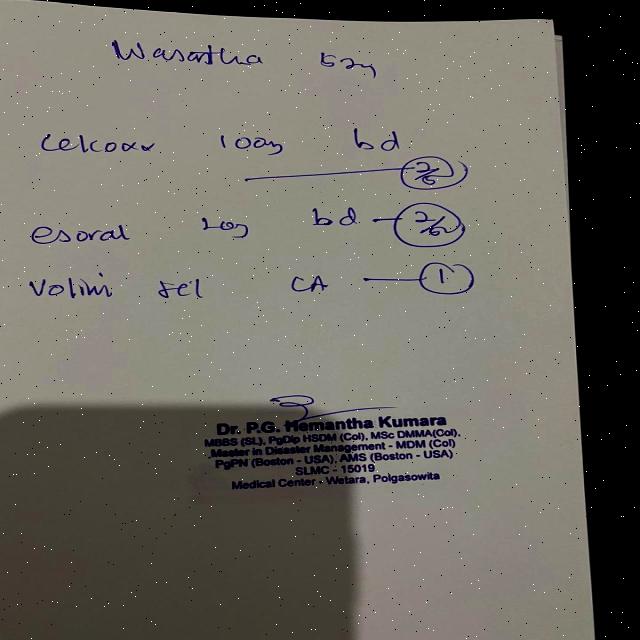 Wasantha 52y
Celcoxx 100mg bd
esoral 20mg bd
Volini gel LA 1
Dr. P.G. Hemantha Kumara
MBBS (SL), PgDip HSDM (Col), MSc DMMA(Col),
Master in Disaster Management - MDM (Col)
PgPN (Boston - USA), AMS (Boston - USA)
SLMC - 15019
Medical Center - Wetara, Polgasowita